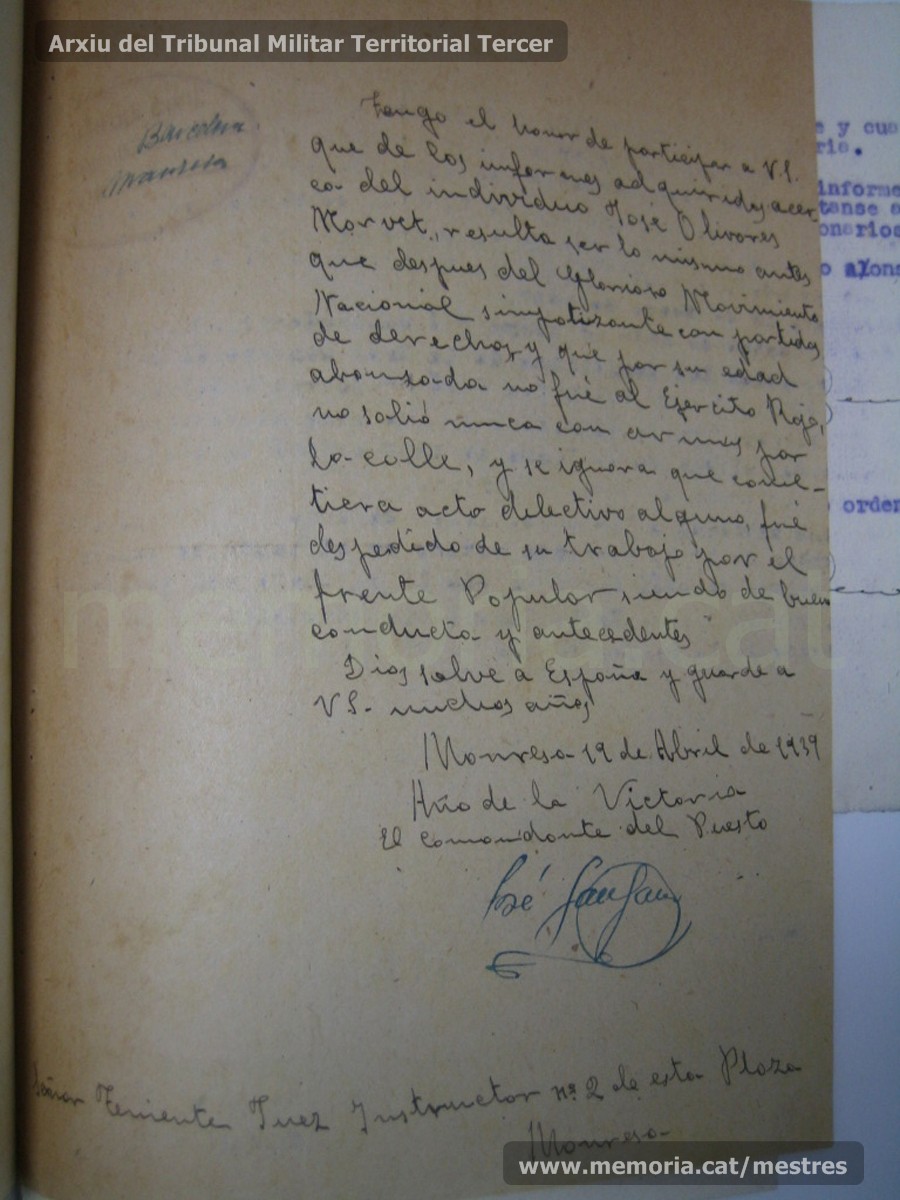 Arxiu del Tribunal Militar Territorial Tercer
Barcelona
Manresa
Tengo el honor de participar a V.S.
que de los informes adquiridos acer
ca del individuo José Olivares
Morvet, resulta ser lo mismo antes
que despues del Glorioso Movimiento
Nacional simpatizante con partidos
de derechas, y que por su edad
abanzada no fué al Ejercito Rojo,
no salió nunca con armas por
la calle, y se ignora que come-
tiera acto delectivo alguno, fué
despedido de su trabajo por el
frente Popular siendo de buen
conducta y antecedentes
Dios salve a España y guarde a
V.S. muchos años
Manresa 19 de Abril de 1939
Año de la Victoria
El Comandante del Puesto
José
Señor Teniente Juez Instructor nº 2 de esta Plaza
Manresa
e y cua
ria.
informe
tanse a
onarios
o alons
orden
memoria.cat
www.memoria.cat/mestres